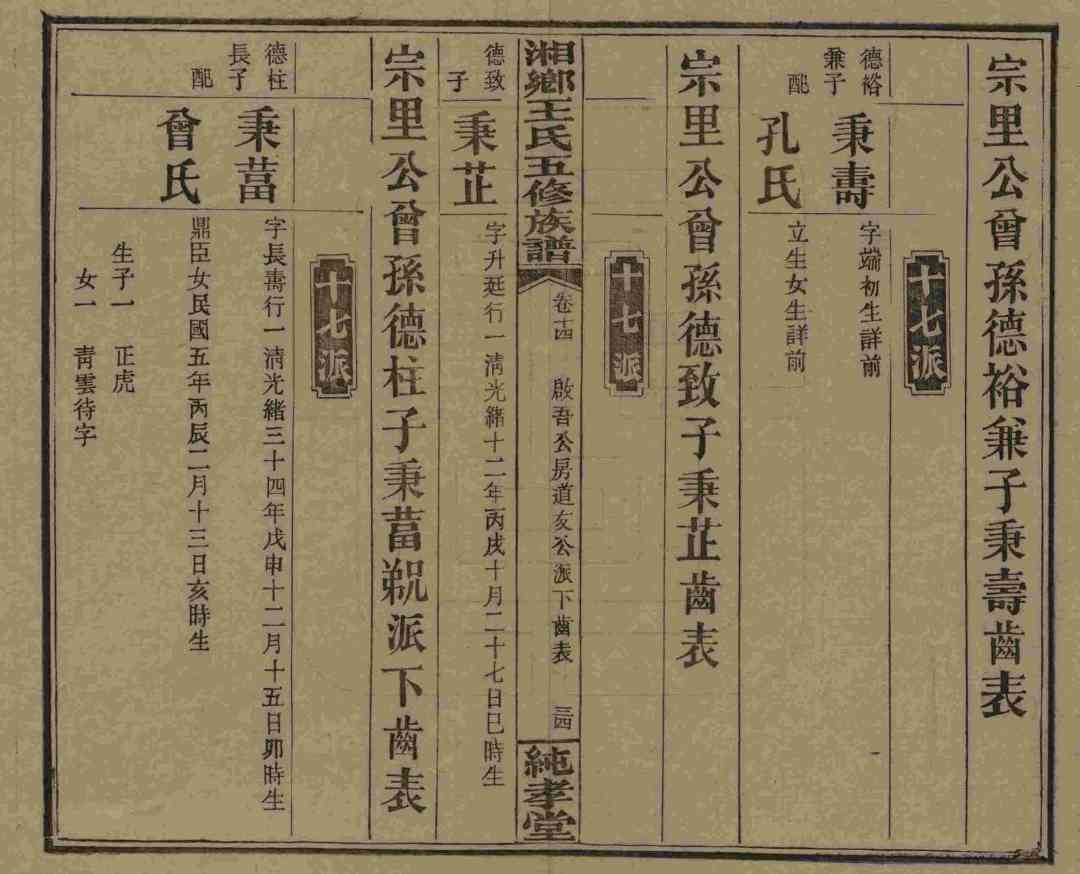 宗里公曾孫德裕兼子秉壽齒表
十七派
德裕
兼子
秉壽
字端初生詳前
配
孔氏
立生女生詳前
宗里公曾孫德致子秉芷齒表
十七派
湘鄉王氏五修族譜
卷十四
啟吾公房道友公派下齒表
三四
純孝堂
德致
子
秉芷
字升廷行一淸光緒十二年丙戌十月二十七日巳時生
宗里公曾孫德柱子秉葍派下齒表
十七派
德柱
長子
秉葍
字長壽行一淸光緒三十四年戊申十二月十五日卯時生
配
曾氏
鼎臣女民國五年丙辰二月十三日亥時生
生子一 正虎
女一 靑雲待字